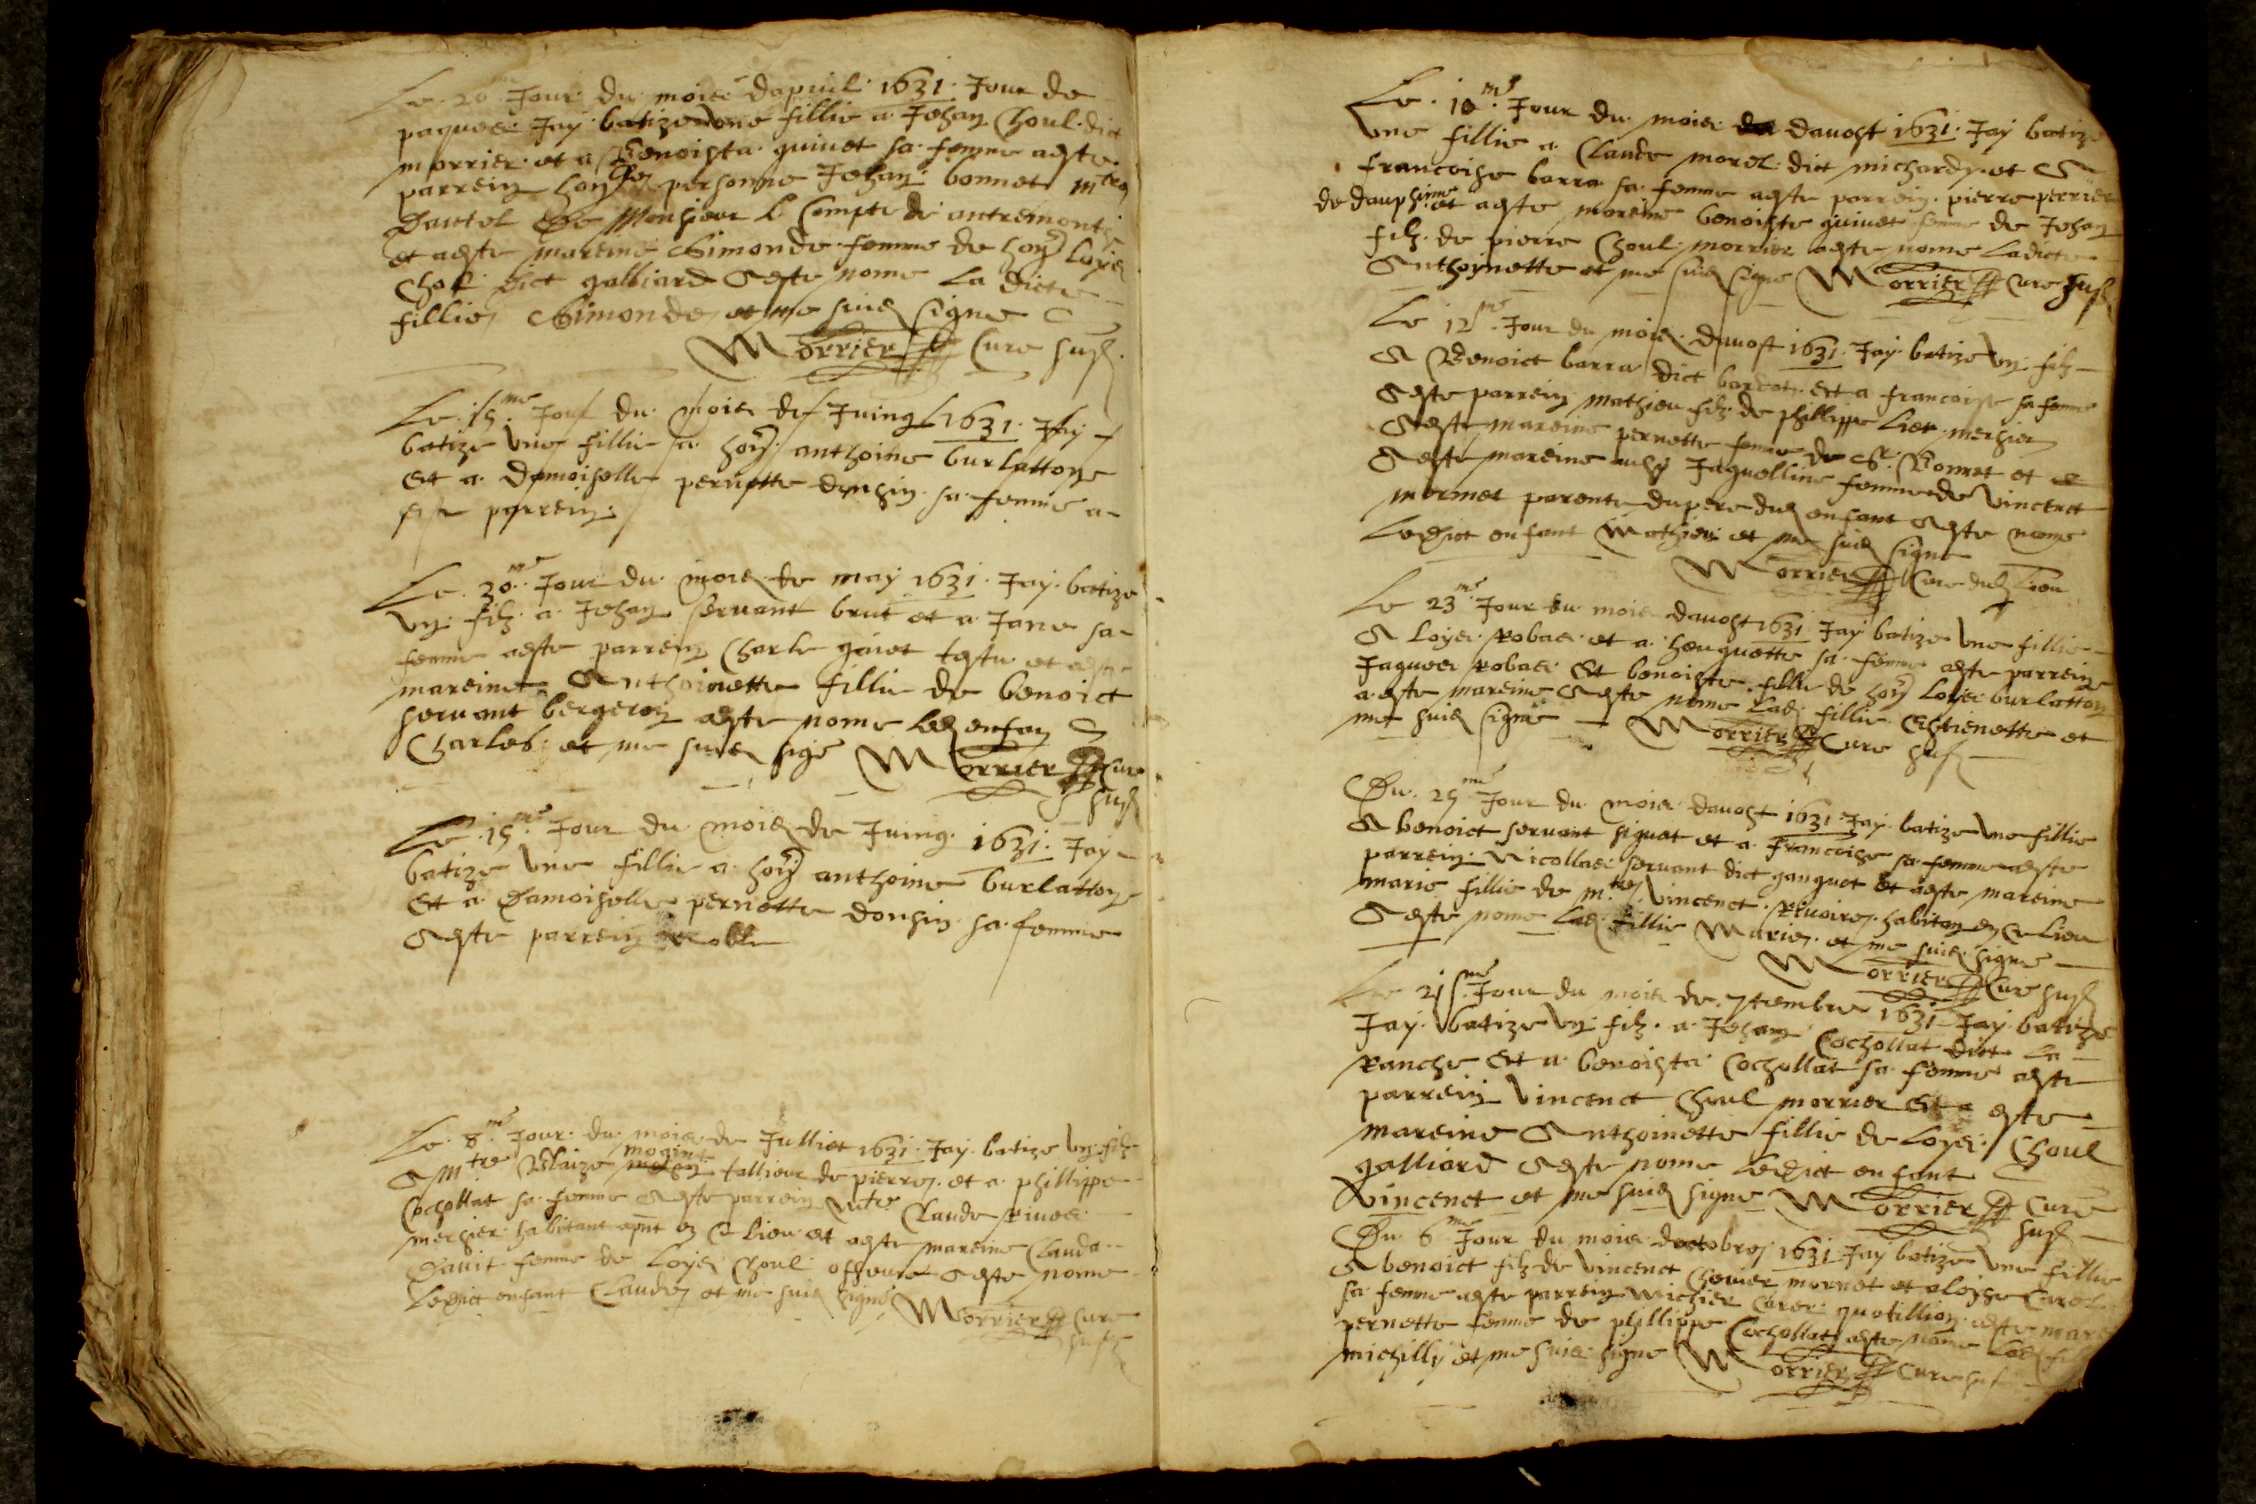 Le 20 Jour du mois dapvril 1631 Jour de
paques Jay batize une fillie a Jehan Choul dict
morrier et a Benoista guivet sa femme aeste
parrein hon personne Jehan bonnet mtre
Dautel De Monsieur le Compte de antremontz
et aeste mareine Simonde femme de hon Loys
Chol dict galliard Aeste nome La dicte
fillie Simonde et me suis signe
Morrier Cure susd.
Le 15me Jour du mois de Juing 1631 Jay
batize une fillie a hon anthoine burlatton
Et a Damoiselle pernette donsin sa femme a
este parrein
Le 30me Jour du mois de may 1631 Jay batize
un filz a Jehan servant brut et a Jane sa
femme aeste parrein Charle et aeste
mareine Anthoinette fillie de benoict
servant bergeron aeste nome led enfan
Charles et me suis signe Morrier Cure
susd
Le 15me Jour du mois de Juing 1631 Jay
batize une fillie a hon anthoine burlatton
Et a Damoiselle pernette donsin sa femme
Aeste parrein noble
Le 8me Jour du mois de Julliet 1631 Jay batize un filz
mogin
A mtre Blaize tallieur de pierres et a phillippe
Cochollat sa femme Aeste parrein mtre Claude rives
mercier habitant apnt en ce lieu et aeste mareine Clauda
Davit femme de Loys Choul Aeste nome
Ledict enfant Claude et me suis signe Morrier Cure
susd
Le 10me Jour du mois davost 1631 Jay batize
une fillie a Claude morel dict michard et A
francoise barra sa femme aeste parrein pierre perrier
de dauphine et aeste mareine benoiste guivet femme de Jehan
filz de pierre Choul morrier aeste nome Ladicte
Anthoinette et me suis signe Morrier Cure susd
Le 12me Jour du mois davost 1631 Jay batize un filz
A Benoict barra dict et a francoise sa femme
Aeste parrein mathieu filz de phillippe mercier
Aeste mareine pernette femme de Sr Bonnet et
Aeste mareine aussy Jaquelline femme de vincenct
mermet parente du pere dud enfant Aeste nome
Ledict enfant Mathieu et me suis signe
Morrier Cure dud Lieu
Le 23me Jour du mois davost 1631 Jay batize une fillie
A Loys robas et a huguette sa femme aeste parrein
Jaques robas Et benoiste fillie de hon Loys burlatton
aeste mareine Aeste nome Lad fillie Estienette et
me suis signe Morrier Cure susd
Du 25me Jour du mois davost 1631 Jay batize une fillie
A benoict servant siguet et a francoise sa femme aeste
parrein Nicollas servant dict ganguet Et aeste mareine
marie fillie de mtre vincenct Revoire habitan en ce Lieu
Aeste nome Lad fillie Marie et me suis signe
Morrier Cure susd
Le 21me Jour du mois de 7tembre 1631 Jay batize
Jay batize un filz a Jehan Cochollat dict La
ranche Et a benoista Cochollat sa femme aeste
parrein vincenct Choul morrier Et a este
mareine Anthoinette fillie de Loys Choul
galliard Aeste nome Ledict enfant
vincenct et me suis signe Morrier Cure
susd
Du 6me Jour du mois doctobre 1631 Jay batize une fillie
A benoict filz de vincenct mermet et aloyse Carol
sa femme aeste parrein Michier Carol aeste mare
pernette femme de phillippe Cochollat aeste nome Lad fil
michilly et me suis signe Morrier Cure susd